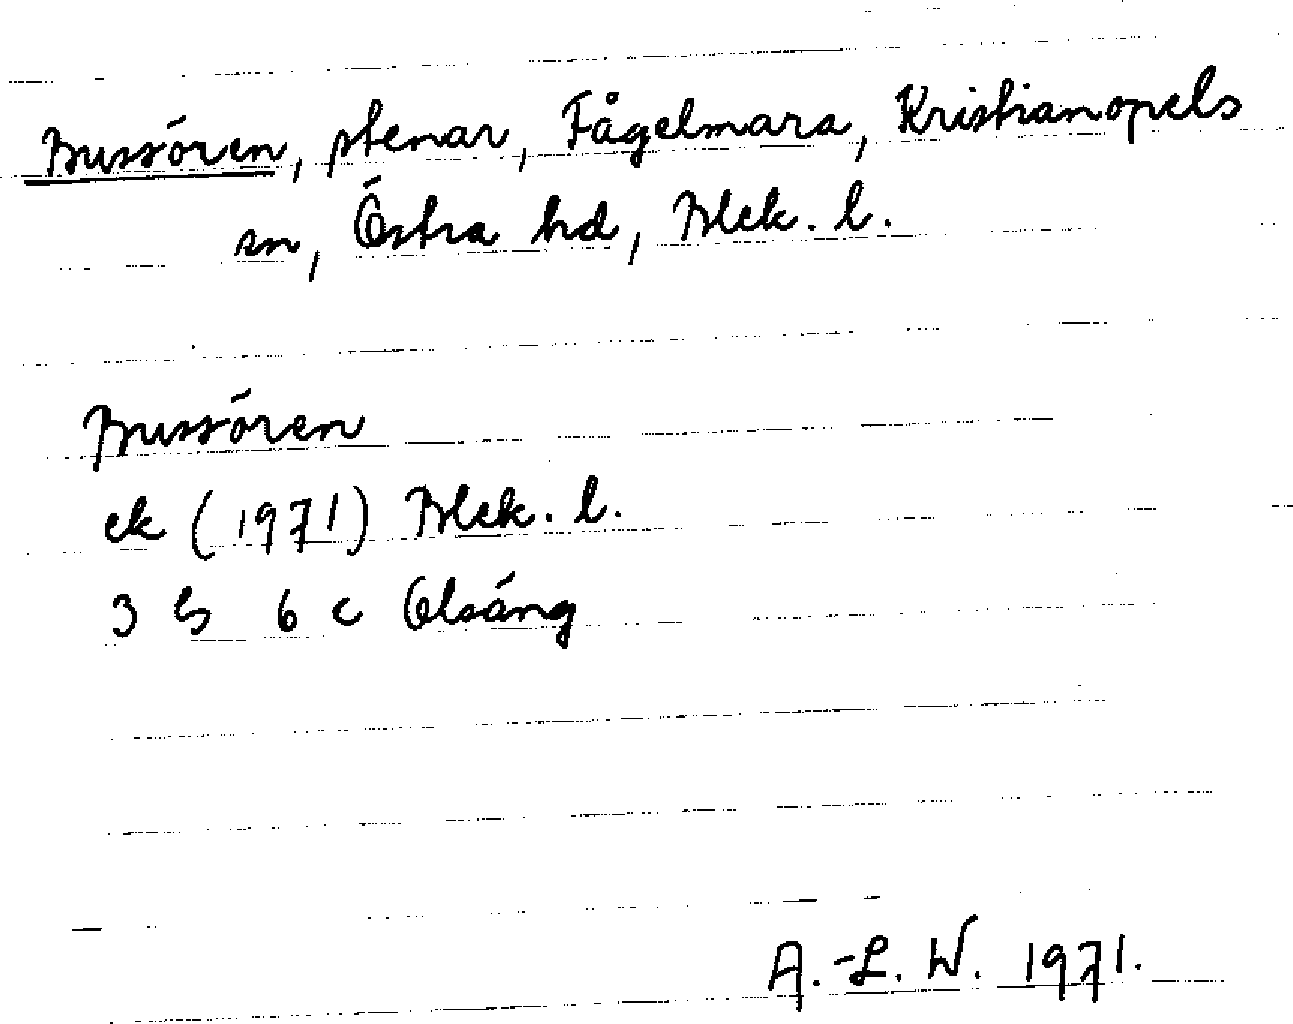 Bussören, stenar, Fågelmara, Kristianopels
sn, Östra hd, Blek. l.
Bussören
ek (1971) Blek. l.
3 G 6 c Olsäng
A.-L. W. 1971.